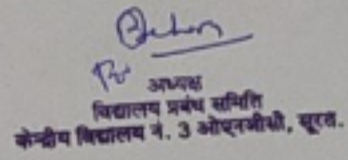 अध्यक्ष
विद्यालय प्रबंध समिति
केन्द्रीय विद्यालय नं. 3 ओएनजीसी, सूरत.